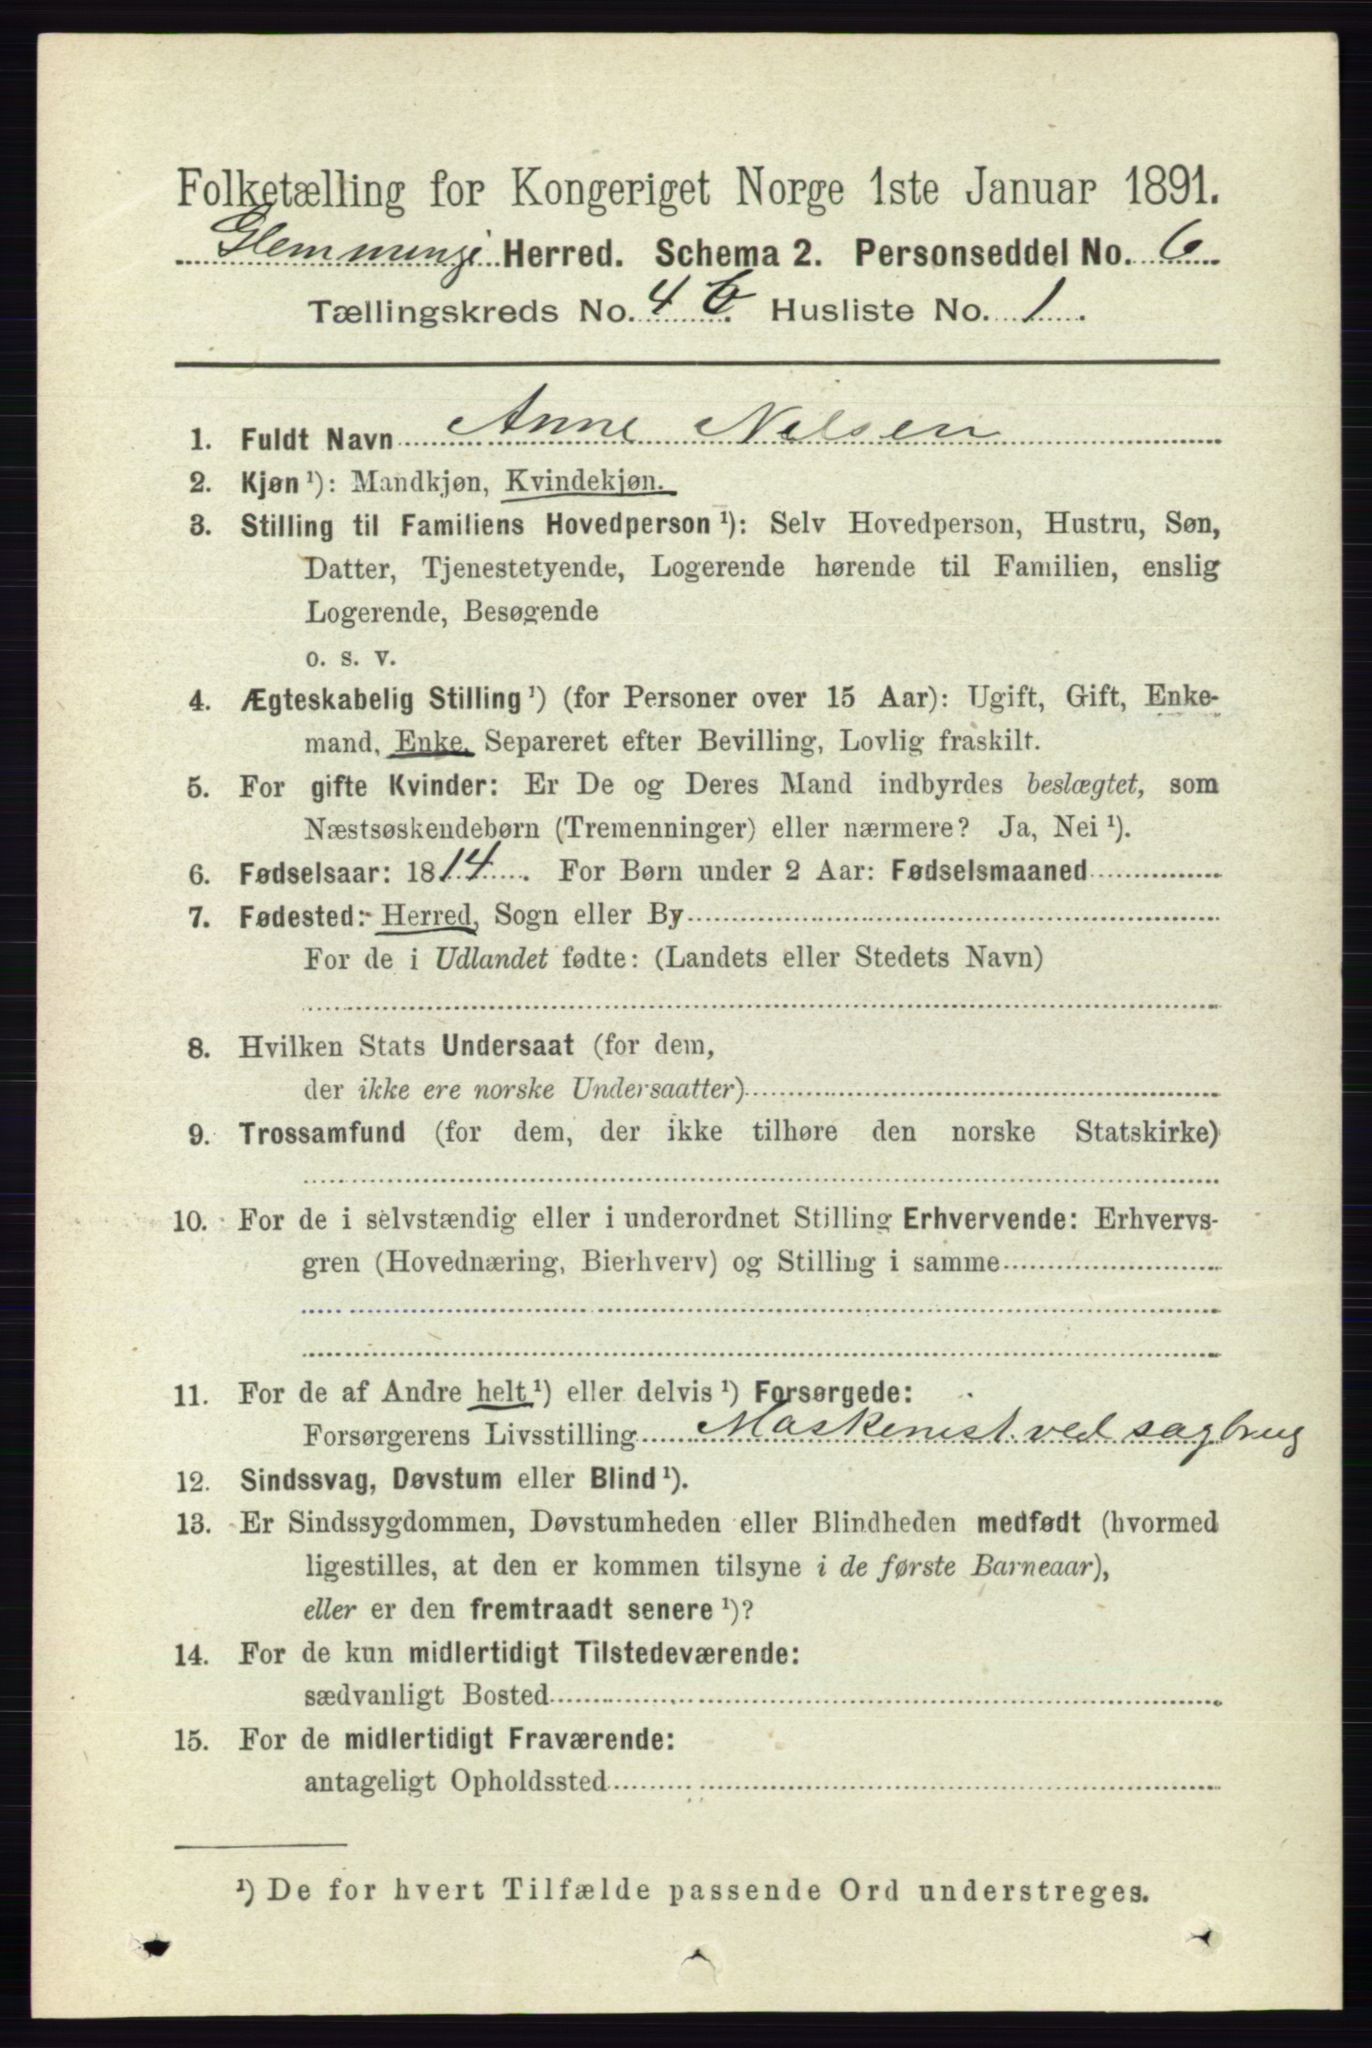 Folketælling for Kongeriget Norge 1ste Januar 1891.
Glemminge Herred. Schema 2. Personseddel No. 6
Tællingskreds No. 4 b Husliste No. 1
1. Fuldt Navn Anne Nilsen
2. Kjøn ¹): Mandkjøn, Kvindekjøn.
3. Stilling til Familiens Hovedperson ¹): Selv Hovedperson, Hustru, Søn,
Datter, Tjenestetyende, Logerende hørende til Familien, enslig
Logerende, Besøgende
o. s. v.
4. Ægteskabelig Stilling ¹) (for Personer over 15 Aar): Ugift, Gift, Enke-
mand, Enke, Separeret efter Bevilling, Lovlig fraskilt.
5. For gifte Kvinder: Er De og Deres Mand indbyrdes beslægtet, som
Næstsøskendebørn (Tremenninger) eller nærmere? Ja, Nei ¹).
6. Fødselsaar: 1814. For Børn under 2 Aar: Fødselsmaaned
7. Fødested: Herred, Sogn eller By
For de i Udlandet fødte: (Landets eller Stedets Navn)
8. Hvilken Stats Undersaat (for dem,
der ikke ere norske Undersaatter)
9. Trossamfund (for dem, der ikke tilhøre den norske Statskirke)
10. For de i selvstændig eller i underordnet Stilling Erhvervende: Erhvervs-
gren (Hovednæring, Bierhverv) og Stilling i samme
11. For de af Andre helt ¹) eller delvis ¹) Forsørgede:
Forsørgerens Livsstilling Maskenist ved sagbrug
12. Sindssvag, Døvstum eller Blind ¹).
13. Er Sindssygdommen, Døvstumheden eller Blindheden medfødt (hvormed
ligestilles, at den er kommen tilsyne i de første Barneaar),
eller er den fremtraadt senere ¹)?
14. For de kun midlertidigt Tilstedeværende:
sædvanligt Bosted
15. For de midlertidigt Fraværende:
antageligt Opholdssted
¹) De for hvert Tilfælde passende Ord understreges.